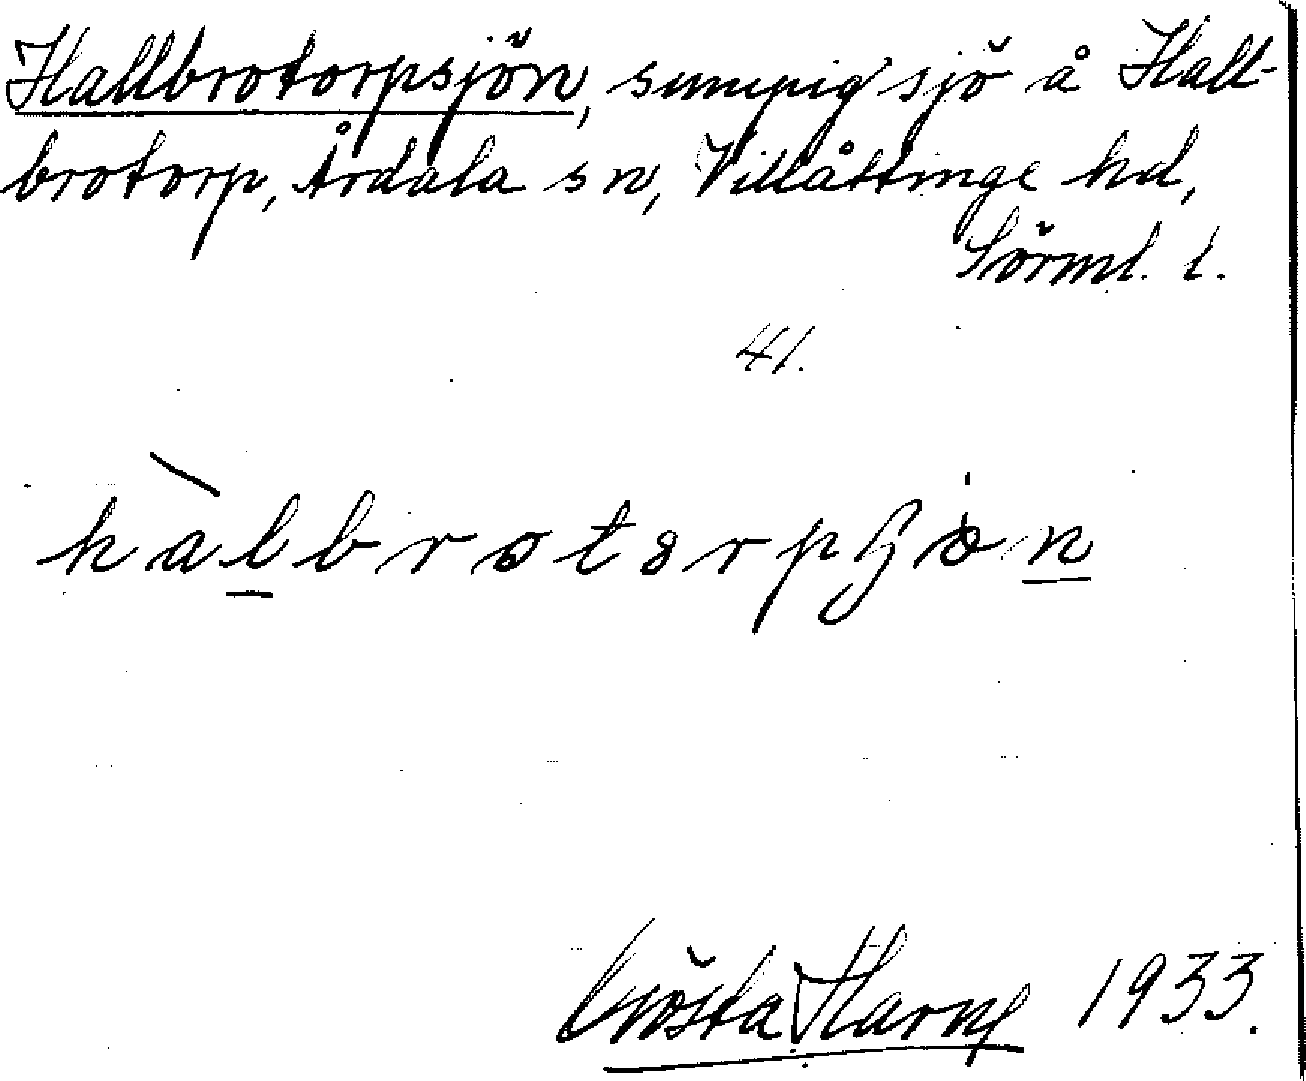 Hallbrotorpsjön, sumpig sjö å Hall-
brotorp, Årdala sn, Villåttinge hd,
Sörml. l.
41.
Gösta Harng 1933.